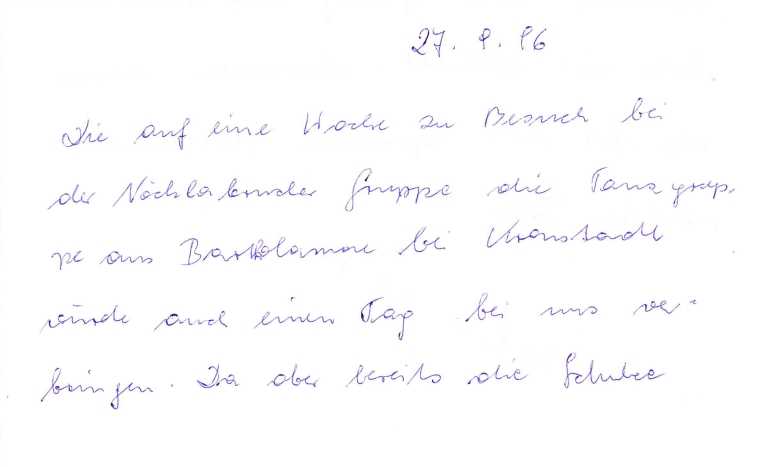 27. 9. 96
Die auf eine Woche zu Besuch bei
der Gruppe die Tanzgrup-
pe aus Bartholomae bei Kronstadt
würde auch einen Tag bei uns ver-
bringen. Da aber bereits die Schule